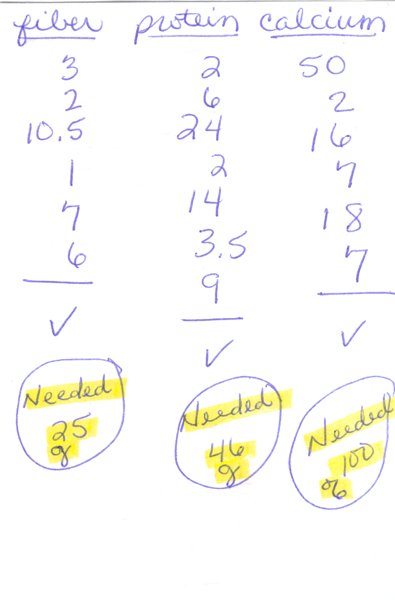 fiber protein calcium
3 2 50
2 6 2
10.5 24 16
1 2 7
7 14 18
6 3.5 7
9
✓ ✓ ✓
Needed Needed Needed
25 46 100
g g %